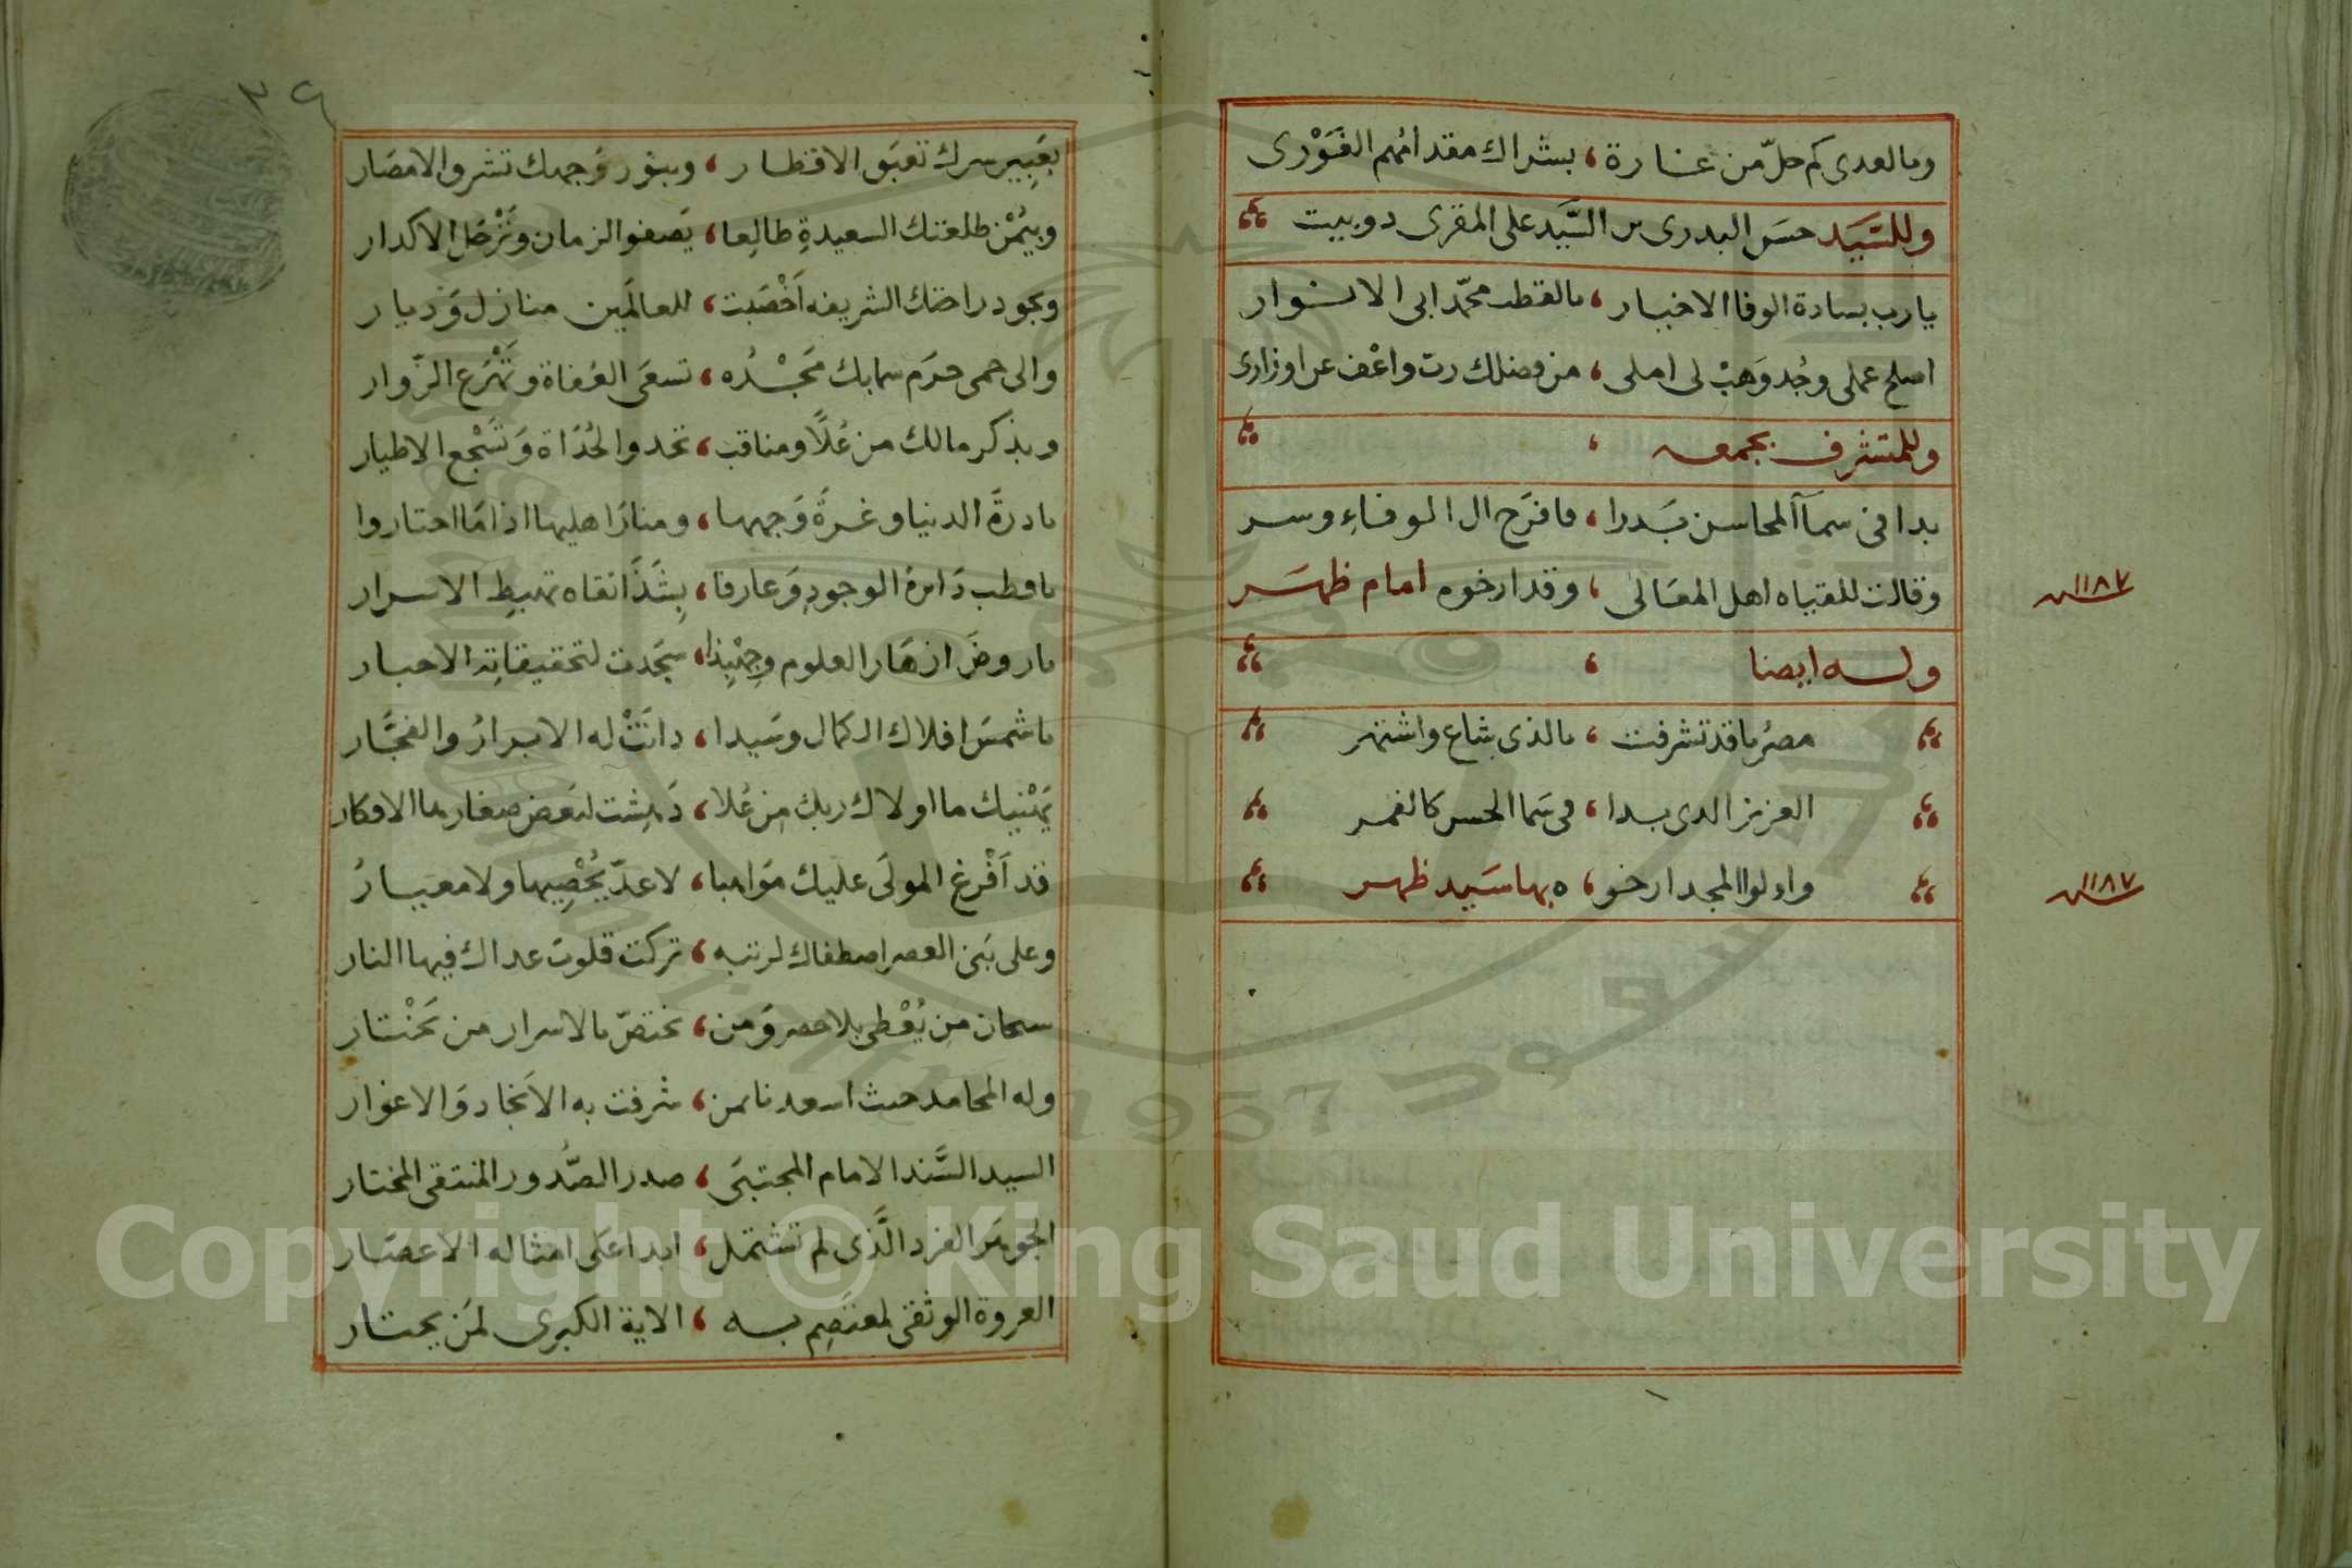 وبالعدى كم حلّ من غارة ، بشراك مقدامهم الفَوْرى
وللسَّيَد حسَن البدرى بن السَّيَد على المقرى دوبيت
يارب بسادة الوفا الاخيار ، بالقطب محمّد ابى الانوار
اصلح عملى وجُد وَهَبْ لى املى ، من فضلك رب واعْف عن اوزارى
وللمتشرف بجمعه ،
بدا فى سمآء المحاسن بَدرا ، فافرَح ال الوفاءِ وسر
وقالت للقياه اهل المعَالى ، وقد ارخوه امام ظهَر
١١٨٧
وله ايضا ،
مصرُنا قد تشرفت ، بالذى شاع واشتهر
العزيز الذى بدا ، فى سَما الحسن كالقمر
واولوا المجد ارخو ، ه بها سَيد ظهر
١١٨٧
٣٤
بعَبِير سرك تعبَق الاقطار ، وبنور وَجهك تشرق الامصَار
وبيُمْن طلعتك السعيدةِ طالِعا ، يَصفو الزمان وتَرْحَل الاكدار
وبجود راحتك الشريفه اَخْصَبت ، للعالَمين منازل وَديار
والى حمى حرَم سمابك مَجْدُه ، تسعَى العُفاة وتَهْرَع الزّوار
وبذكر مالك من عُلًا ومناقب ، تحدو الحُدَاة وَتَسْجع الاطيار
يادرةَ الدنيا وغرةَ وَجهها ، ومنارَاهليها اذامَا احتاروا
ياقطب دَائرة الوجودِ وَعارفا ، بِشَذَا نقاه تهبطِ الاسرار
ياروضَ ازهَار العلوم وجِهْبِذا ، سجَدت لتحقيقاتِه الاحبار
ياشمسَ افلاك الكمال وسَيدا ، دانَتْ له الابرارُ والفجَّار
يَهْنيك ما اولاك ربك مِن عُلا ، دَهِشت لبَعض صغارها الافكار
قد اَفْرغ المولَى عليك مَواهبا ، لاعدّ يُحْصِيها ولامعيَارُ
وعلى بَنى العصر اصطفاك لرتبه ، تركت قلوبَ عداك فيها النار
سبحان مِن يُعْطى بلاحصر وَمن ، يختصّ بالاسرار من يَخْتار
وله المحامد حيث اسعدنا بمن ، شرفت به الاَنجاد وَالاغوار
السيد السَّند الامام المجتبَى ، صدر الصُّدور المنتقى المختار
الجوهَر الفرد الَّذى لم تشتمل ، ابدا عَلى امثاله الاعصَار
العروة الوثقى لمعتصِم به ، الاية الكبرى لمَن يحتار
Copyright © King Saud University
1957